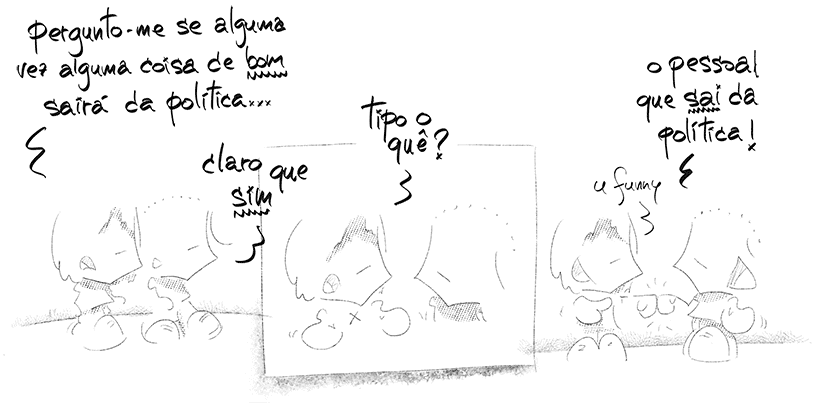 pergunto-me se alguma
vez alguma coisa de bom
sairá da política...
claro que
sim
tipo o
quê?
o pessoal
que sai da
política!
u funny